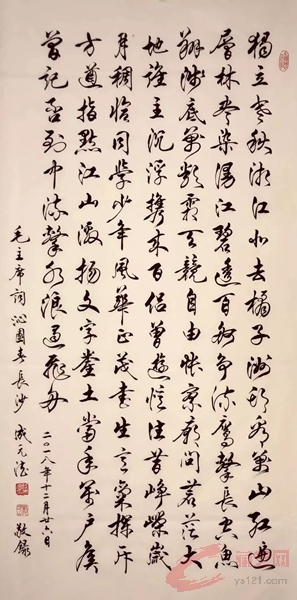 獨立寒秋湘江北去橘子洲頭看萬山红遍
層林尽染漫江碧透百舸争流鹰擊長空魚
翔浅底萬類霜天競自由悵寥廓问苍茫大
地谁主沉浮携来百侣曾遊忆往昔峥嵘歲
月稠恰同學少年風華正茂书生意氣挥斥
方遒指點江山激揚文字粪土當年萬户侯
曾记否到中流擊水浪遏飛舟
毛主席詞沁園春長沙
二〇一八年十二月廿六日 敬錄
ys121.com